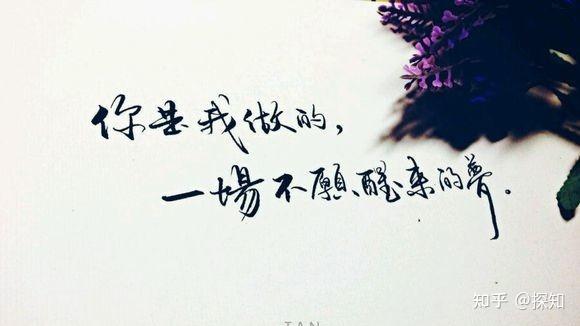 你是我做的，
一場不願醒來的夢。
TAN
知乎 @探知